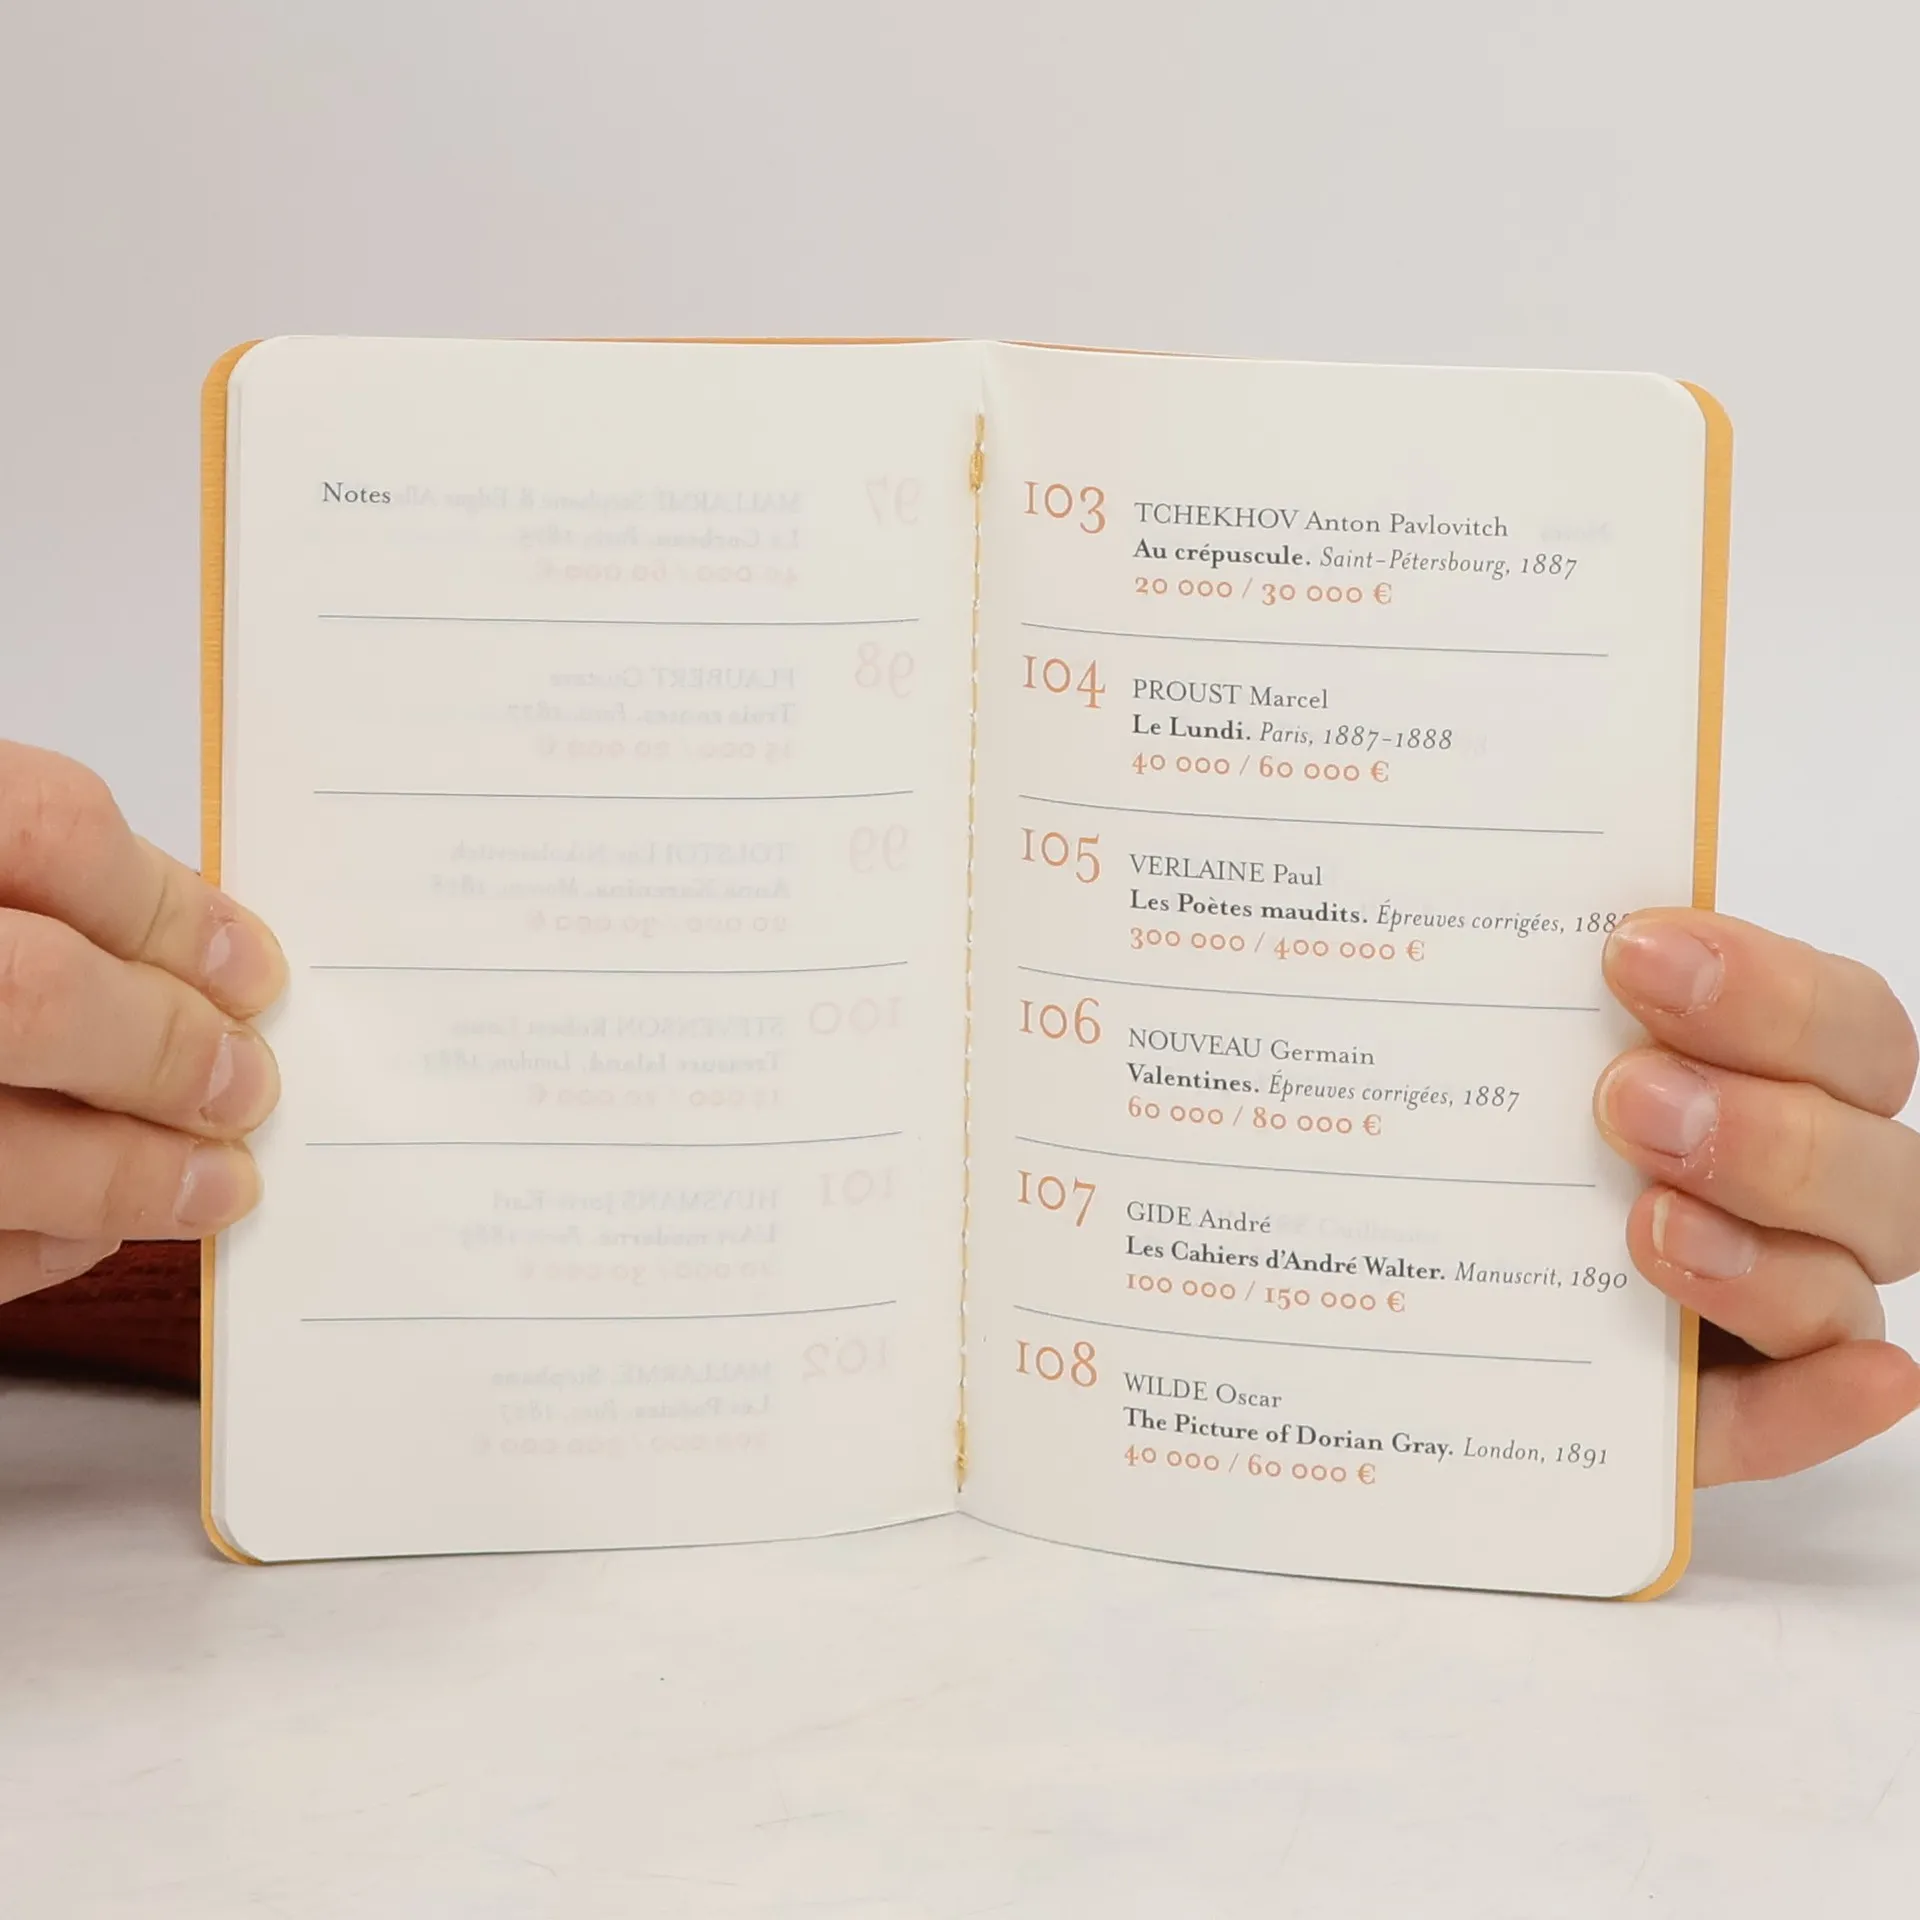 Notes
103
TCHEKHOV Anton Pavlovitch
Au crépuscule. Saint-Pétersbourg, 1887
20 000 / 30 000 €
104
PROUST Marcel
Le Lundi. Paris, 1887-1888
40 000 / 60 000 €
105
VERLAINE Paul
Les Poètes maudits. Épreuves corrigées,
300 000 / 400 000 €
106
NOUVEAU Germain
Valentines. Épreuves corrigées, 1887
60 000 / 80 000 €
107
GIDE André
Les Cahiers d'André Walter. Manuscrit, 1890
100 000 / 150 000 €
108
WILDE Oscar
The Picture of Dorian Gray. London, 1891
40 000 / 60 000 €